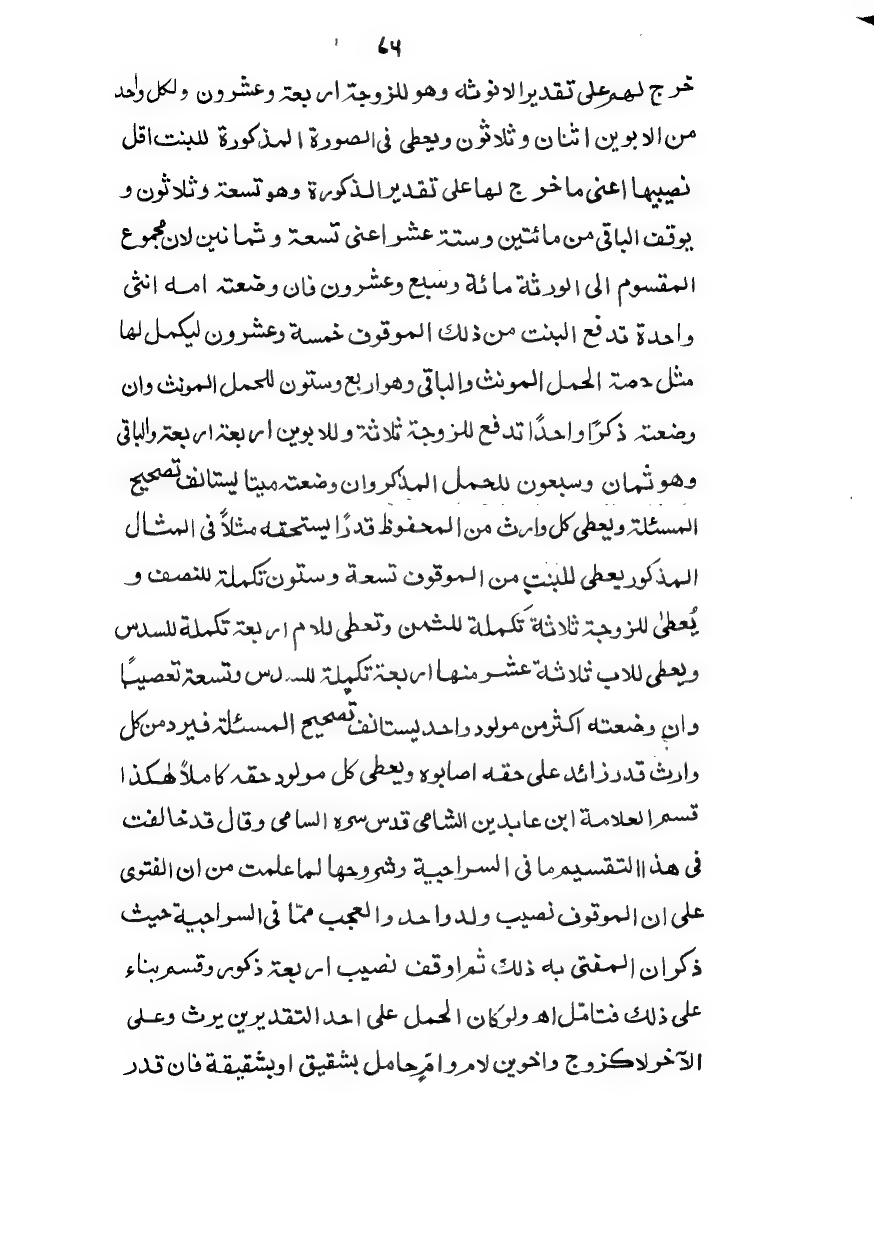 ۶۴
خرج لهم على تقدير الانوثه وهو للزوجة اربعة وعشرون ولكل واحد
من الابوين اثنان وثلاثون ويعطى فى الصورة المذكورة للبنت اقل
نصيبها اعنى ما خرج لها على تقدير الذكورة وهو تسعة وثلاثون و
يوقف الباقى من مائتين وستة عشر اعنى تسعة وثمانين لان مجموع
المقسوم الى الورثة مائة وسبع وعشرون فان وضعته امه انثى
واحدة تدفع البنت من ذلك الموقوف خمسة وعشرون ليكمل لها
مثل حصة الحمل المونث والباقى وهو اربع وستون للحمل المونث وان
وضعته ذكرًا واحدًا تدفع للزوجة ثلاثة وللابوين اربعة اربعة والباقى
وهو ثمان وسبعون للحمل المذكر وان وضعته ميتا يستانف تصحيح
المسئلة ويعطى كل وارث من المحفوظ قدرًا يستحقه مثلاً فى المثال
المذكور يعطى للبنت من الموقون تسعة وستون تكملة للنصف و
يُعطىٰ للزوجة ثلاثة تكملة للثمن وتعطى للام اربعة تكملة للسدس
ويعطى للاب ثلاثة عشر منها اربعة تكملة للسدس وتسعة تعصيبًا
وان وضعته اكثر من مولود واحد يستانف تصحيح المسئلة فيرد من كل
وارث قدر زائد على حقه اصابوه ويعطى كل مولود حقه كاملاً هكذا
قسم العلامة ابن عابدين الشامى قدس سره السامى وقال قد خالفت
فى هذا التقسيم ما فى السراجية وشروحها لما علمت من ان الفتوى
على ان الموقوف نصيب ولد واحد والعجب ممّا فى السراجية حيث
ذكر ان المفتى به ذلك ثم اوقف نصيب اربعة ذكور وقسم بناء
على ذلك فتامّل اه ولو كان الحمل على احد التقديرين يرث وعلى
الآخر لا كزوج واخوين لام وامّ حامل بشقيق او بشقيقة فان قدر